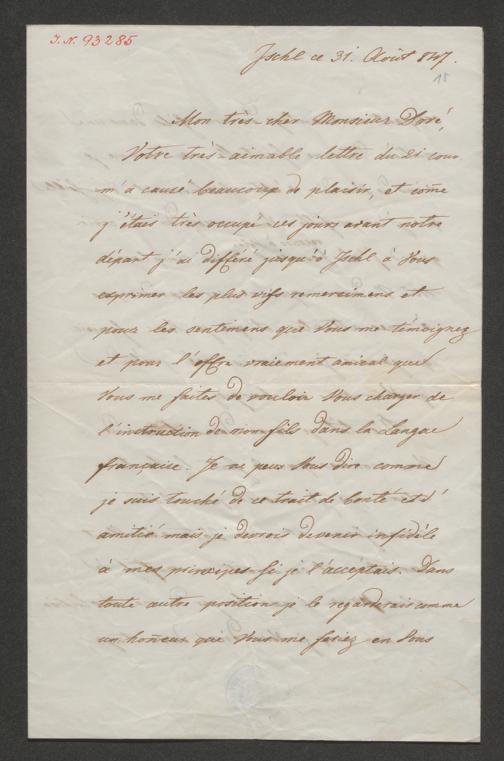 J. N. 93285
Ischl ce 31. Août 847.
18
Mon très-cher Monsieur Doré,
Votre très-aimable lettre du 21 cour
m'a causé beaucoup de plaisir, et com̄e
j'étais très occupé ces jours avant notre
départ j'ai différé jusqu'à Ischl à Vous
exprimer les plus vifs remercimens et
pour les sentimens que Vous me témoignez
et pour l'offre vraiement amical que
Vous me faites de vouloir Vous charger de
l'instruction de mon fils dans la Langue
française. Je ne peux Vous dire comme
je suis touché de ce trait de bonté et d'
amitié mais je devrois devenir infidèle
à mes principes si je l'acceptais. Dans
toute autre position je le regarderais comme
un hon̄eur que Vous me fesiez en Vous